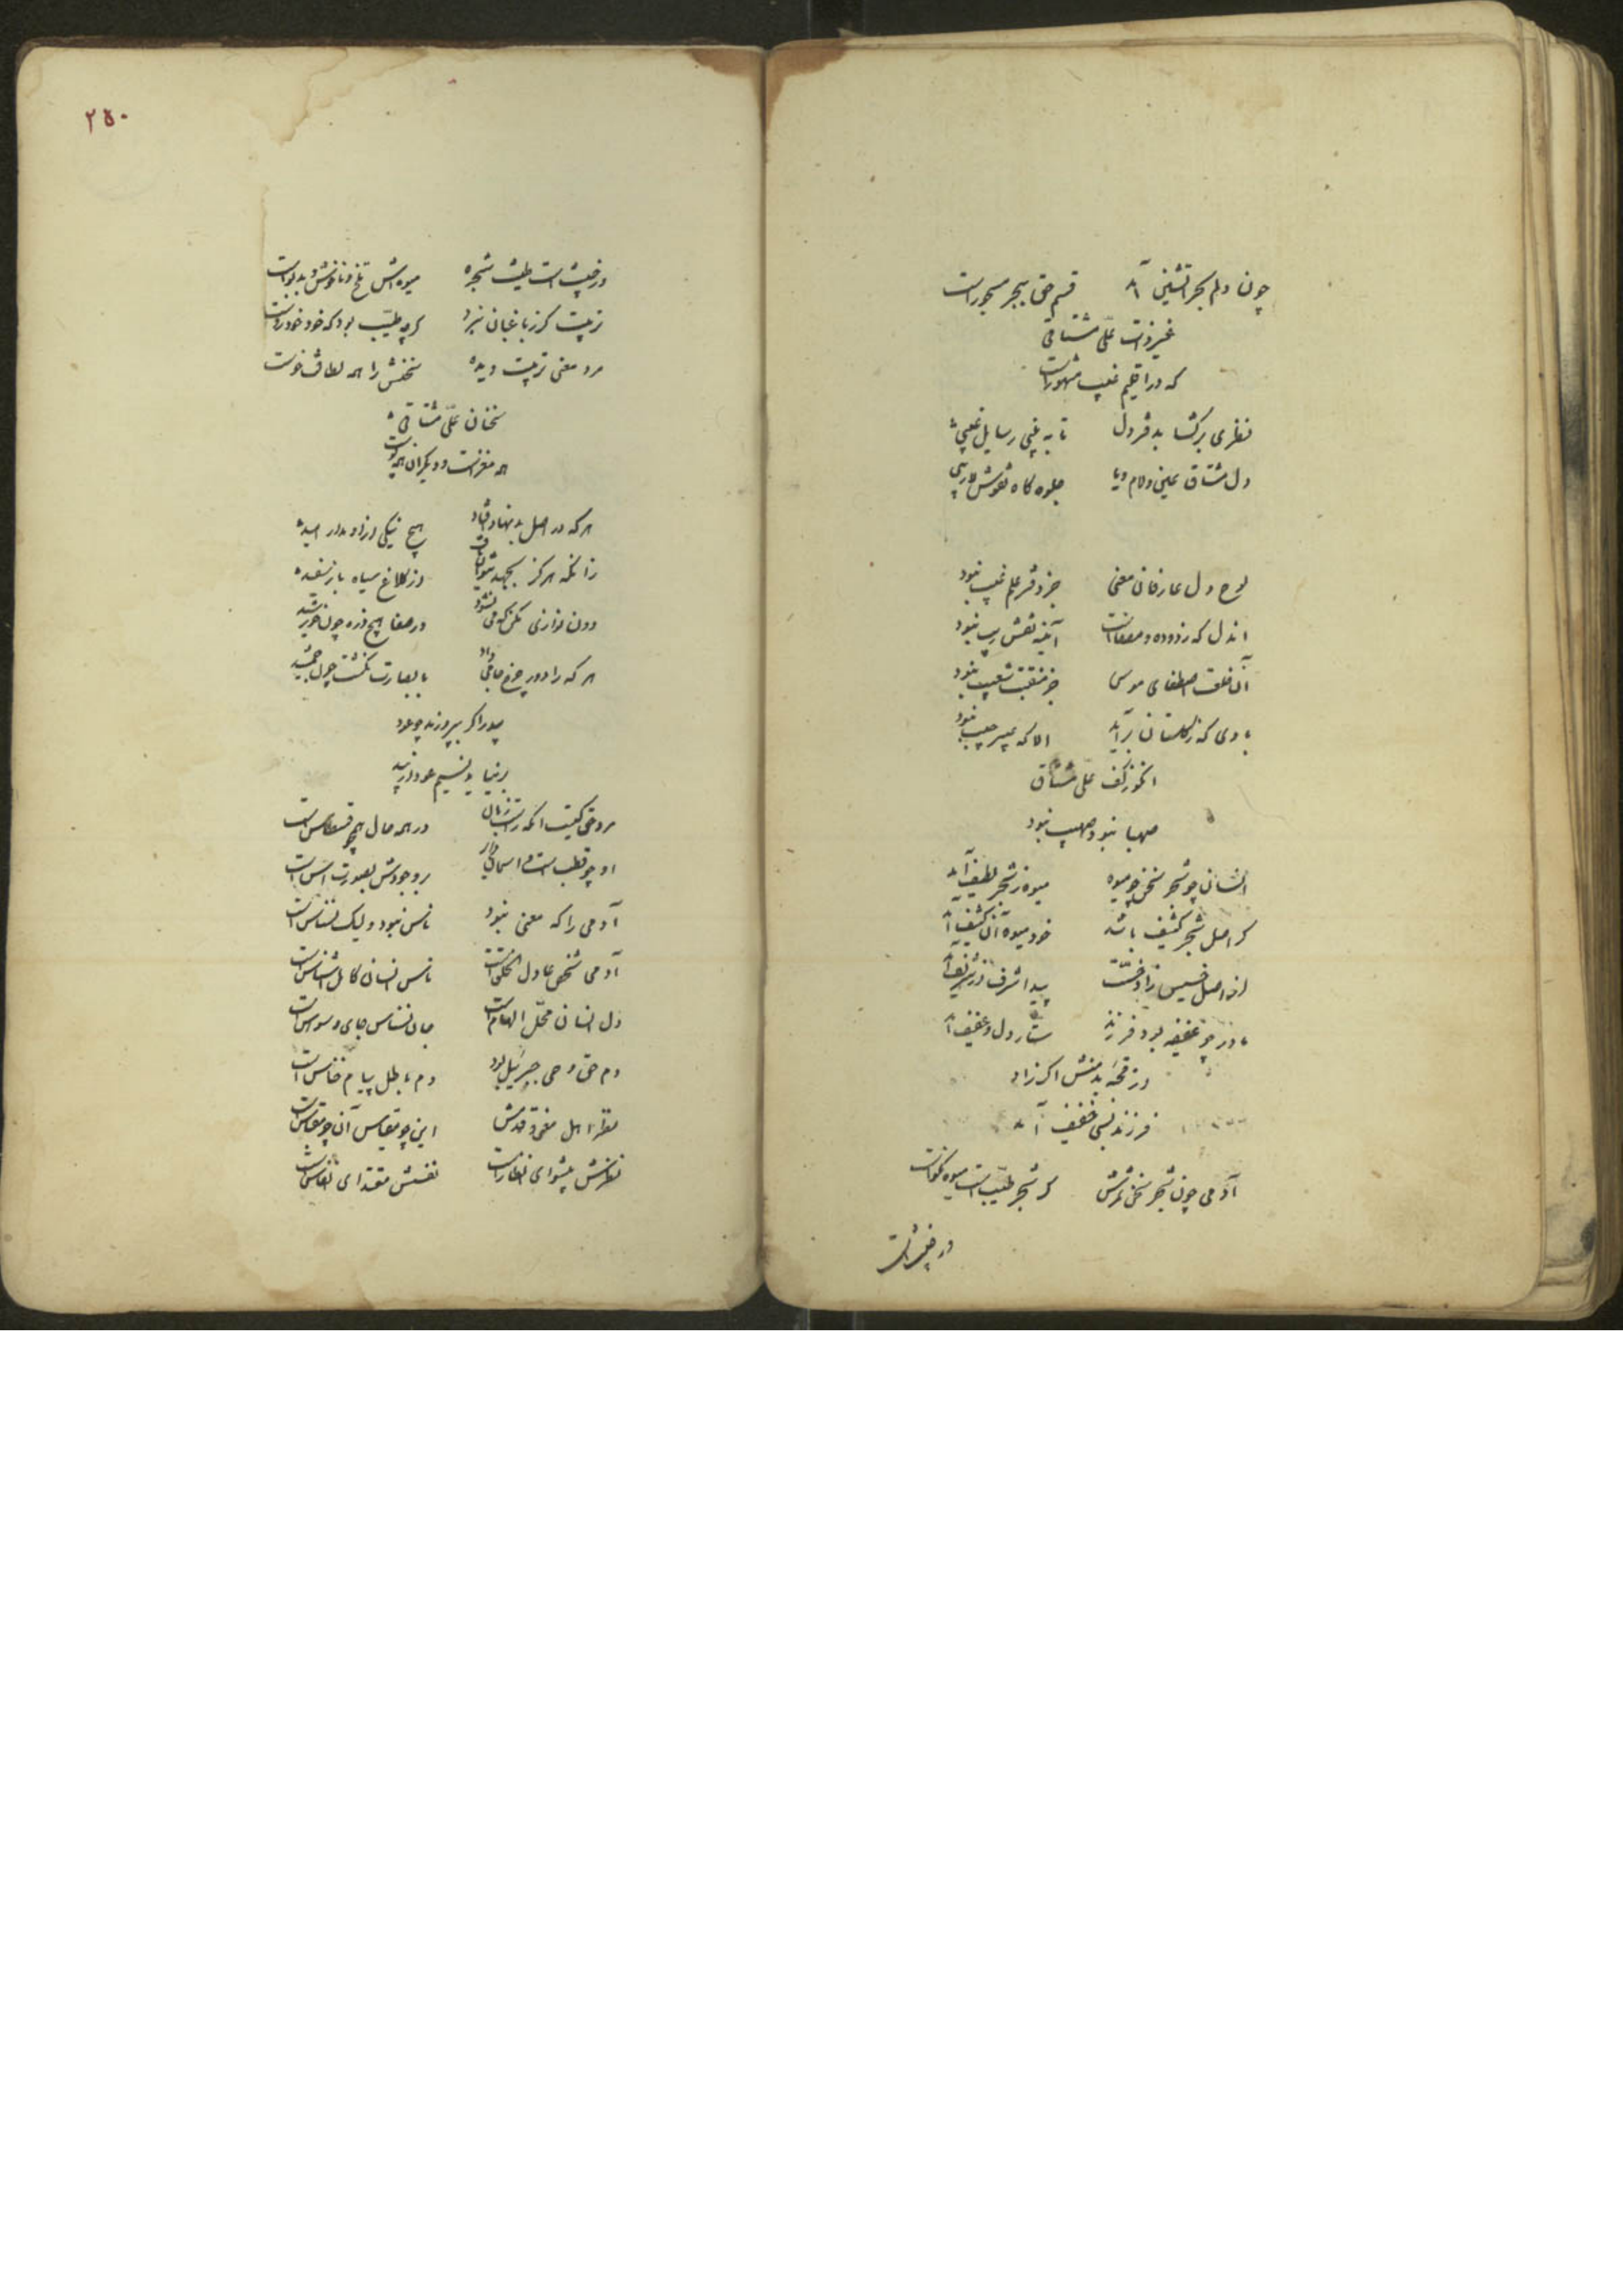 چون دلم بحر آتشین آمد قسم حق ببحر مسجور است
غیر ذات علی مشتاقی
که در اقلیم غیب مشهور است
نظری برگشا بدفتر دل تا به بینی رسایل غیبی
دل مشتاق عینی و لام و یا جلوه گاه نقوش لاریبی
لوح دل عارفان معنی جز دفتر علم غیب نبود
اندل که زدوده و مصفاست آینه نقش ریب نبود
آن خلعت اصطفای موسی جز منقبت شعیب نبود
بادی که ز گلستان برآید الا که عبیر جیب نبود
انکور کف علی مشتاق
صهبا نبود صهیب نبود
انسان چو شجر سخن چو میوه میوه ز شجر لطیف آید
کر اصل شجر کثیف باشد خود میوه آن کثیف آید
از اصل خسیس زاد خست پیدا شرف از شریف آید
مادر چو عفیفه بود فرزند ستار دل و عفیف آید
ور قحبه بد منش اکر زاد
فرزند بسی خفیف آمد
آدمی چون شجر سخن ثمرش کر شجر طیب است میوه نکوست
ور خبیث است
۲۵۰
ور خبیث است طینت شجره میوه اش تلخ و ناخوش و بد بوست
تربیت کر ز باغبان نبرد کرچه طیب بود که خود خودروست
مرد معنی تربیت دیده سخنش را همه لطافت خوست
سخنان علی مشتاقی
همه مغزست و دیکران همه پوست
هر که در اصل بد نهاد افتاد هیچ نیکی ازو مدار امید
زانکه هرکز بجهد نتوان ساخت از کلاغ سیاه باز سفید
دون نوازی مکن که می نشود در صفا هیچ ذره چون خورشید
هر که را دور چرخ جامی داد با بصارت نکشت چون جمشید
بید را کر بپرورند چو عود
برنیاید نسیم عود از بید
مرد حق کیست آنکه راست زبان در همه حال همچو قسطاس است
او چو قطب است و اسمان بر وجودش بصورت آس است
آدمی را که معنی نبود ناس نبود ولیک نسناس است
آدمی شخص عادل الحکم است ناس انسان کامل شناس است
دل انسان محل الهام است جان نسناس جای وسواس است
دم حق وحی جبرئیل بود دم باطل پیام خناس است
این چو مقیاس آن چو مقباس است
نظرش پیشوای انظار است نفسش مقتدای انفاس است